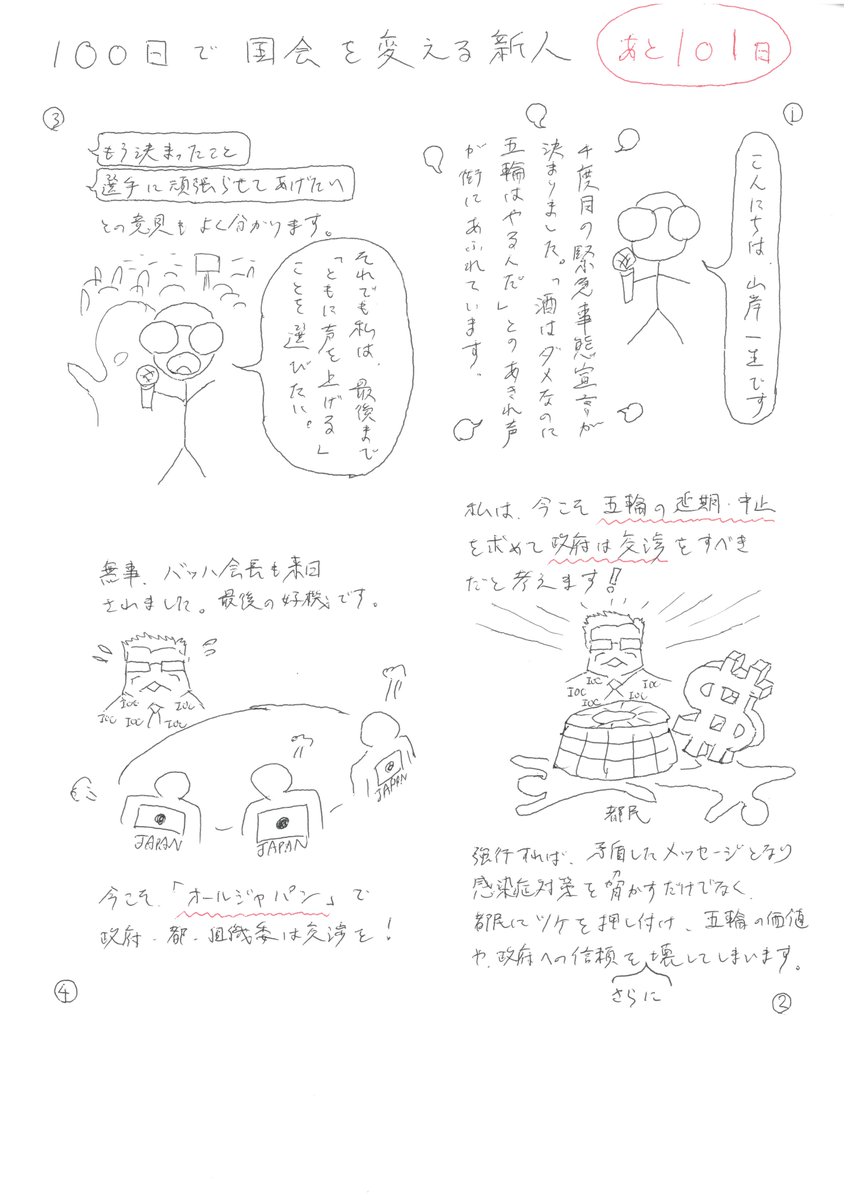 100日で国会を変える新人
あと101日
①
こんにちは、山岸一生です
4度目の緊急事態宣言が
決まりました。「酒はダメなのに
五輪はやるんだ」とのあきれ声
が街にあふれています。
私は、今こそ五輪の延期・中止
を求めて政府は交渉をすべき
だと考えます!
IOC
IOC
IOC
IOC
IOC
都民
強行すれば、矛盾したメッセージとなり
感染症対策を脅かすだけでなく、
都民にツケを押し付け、五輪の価値
や、政府への信頼を壊してしまいます。
さらに
②
③
もう決まったこと
選手に頑張らせてあげたい
との意見もよく分かります。
それでも私は、最後まで
「ともに声を上げる」
ことを選びたい。
無事、バッハ会長も来日
されました。最後の好機です。
IOC
IOC
IOC
IOC
IOC
JAPAN
JAPAN
JAPAN
今こそ、「オールジャパン」で
政府・都・組織委は交渉を!
④